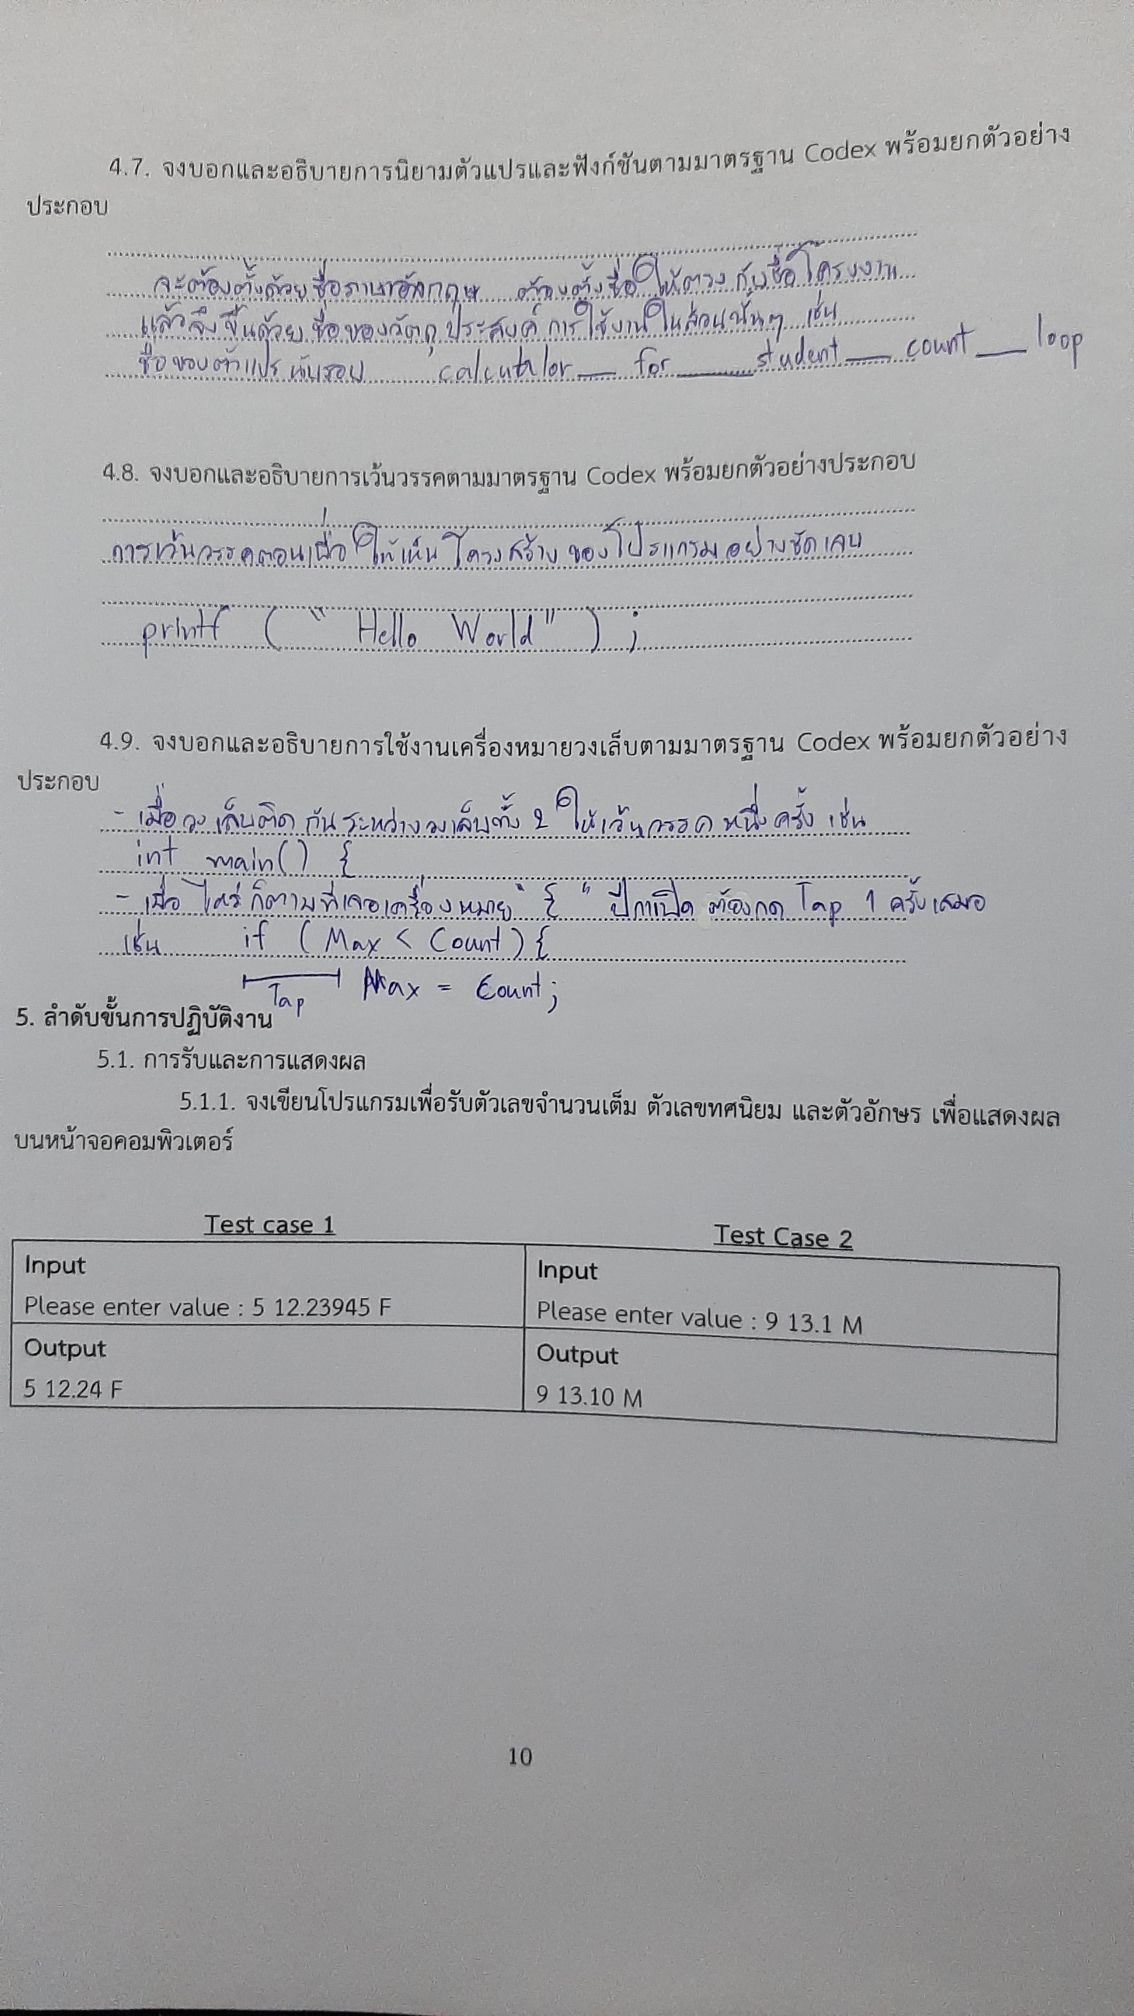 4.7. จงบอกและอธิบายการนิยามตัวแปรและฟังก์ชันตามมาตรฐาน Codex พร้อมยกตัวอย่าง
ประกอบ
จะต้องตั้งด้วยชื่อภาษาอังกฤษ ต้องตั้งชื่อให้ตรงกับชื่อโครงงาน
แล้วจึงขึ้นด้วยชื่อของวัตถุประสงค์การใช้งานในส่วนนั้นๆ เช่น
ชื่อของตัวแปรนับรอบ calcutalor_for_student_count_loop
4.8. จงบอกและอธิบายการเว้นวรรคตามมาตรฐาน Codex พร้อมยกตัวอย่างประกอบ
การเว้นวรรคตอนเพื่อให้เห็นโครงสร้างของโปรแกรมอย่างชัดเจน
printf ( " Hello World" ) ;
4.9. จงบอกและอธิบายการใช้งานเครื่องหมายวงเล็บตามมาตรฐาน Codex พร้อมยกตัวอย่าง
ประกอบ
- เมื่อวงเล็บติดกันระหว่างวงเล็บทั้ง 2 ให้เว้นวรรคหนึ่งครั้ง เช่น
int main() {
- เมื่อไหร่ก็ตามที่เจอเครื่องหมาย " { " ปีกกาเปิด ต้องกด Tap 1 ครั้งเสมอ
เช่น if ( Max < Count ) {
Tap Max = Count;
5. ลำดับขั้นการปฏิบัติงาน
5.1. การรับและการแสดงผล
5.1.1. จงเขียนโปรแกรมเพื่อรับตัวเลขจำนวนเต็ม ตัวเลขทศนิยม และตัวอักษร เพื่อแสดงผล
บนหน้าจอคอมพิวเตอร์
Test case 1
Input
Please enter value : 5 12.23945 F
Output
5 12.24 F
Test Case 2
Input
Please enter value : 9 13.1 M
Output
9 13.10 M
10